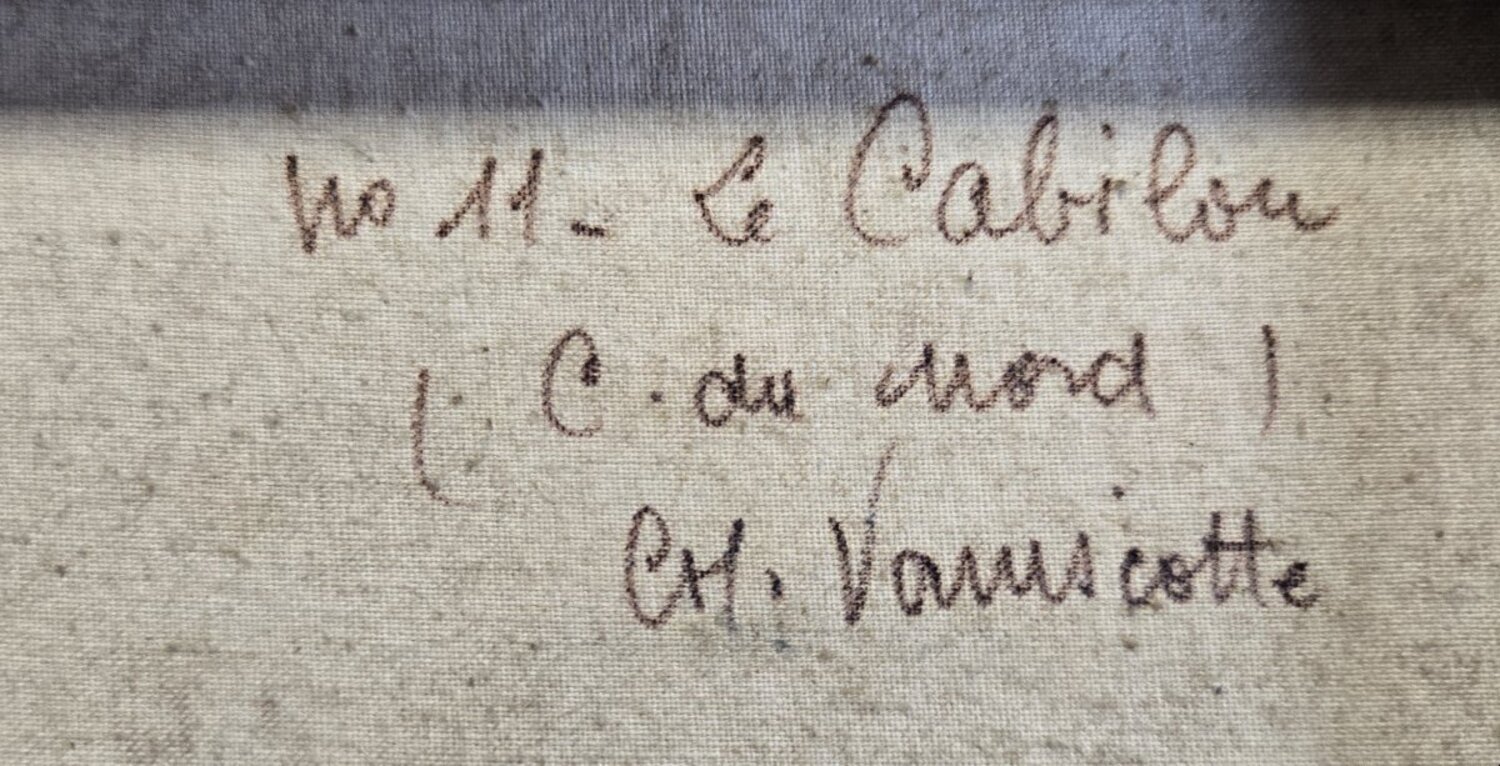 No 11 - Le Cabilou
( C. du Nord )
CH. Vaniscotte